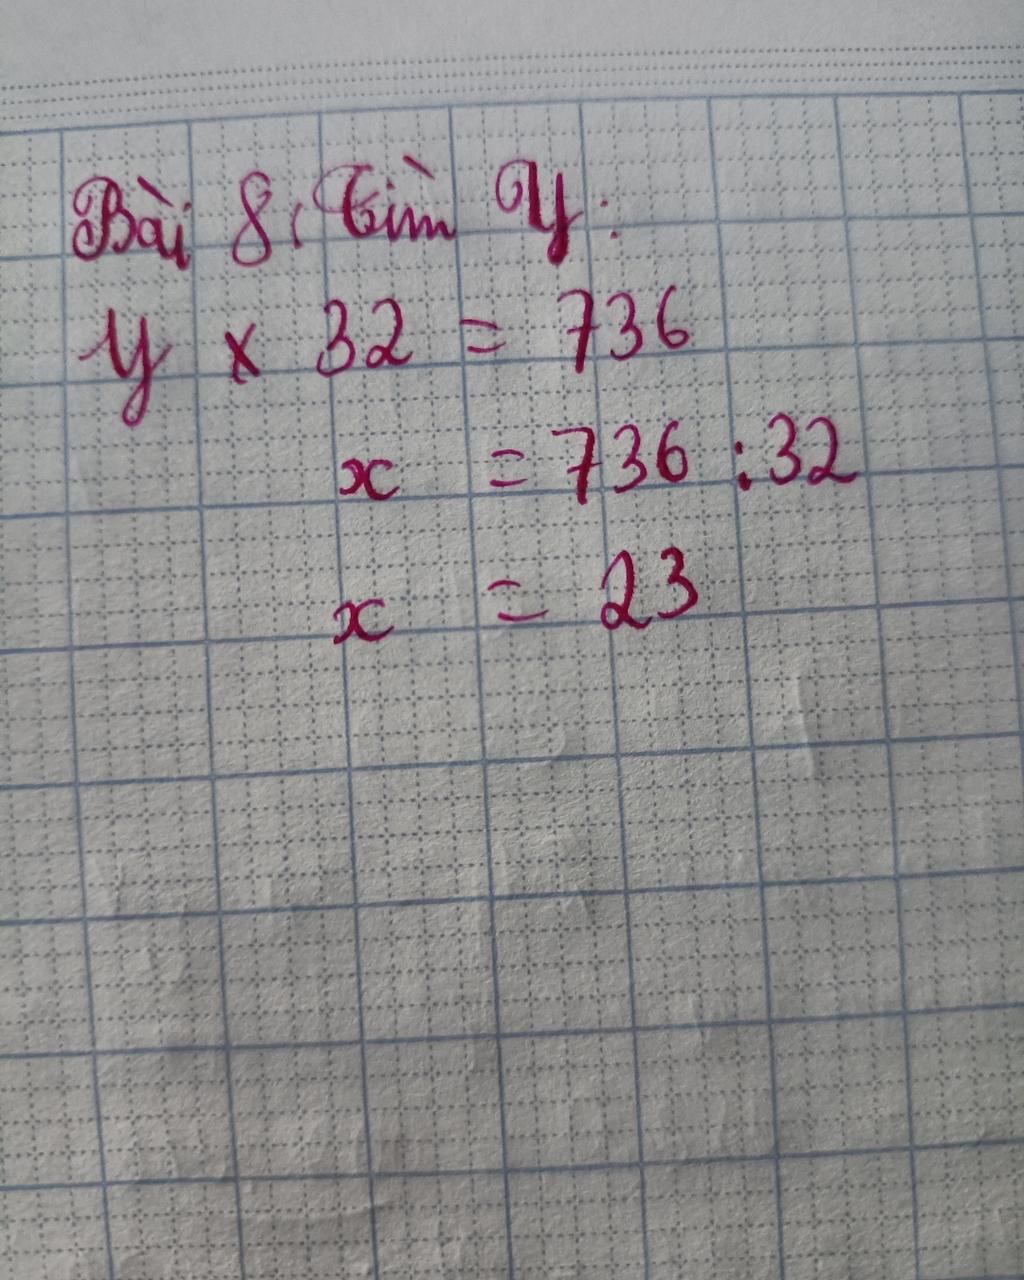 Bài 8, Tìm y:
y x 32 = 736
x = 736 : 32
x = 23